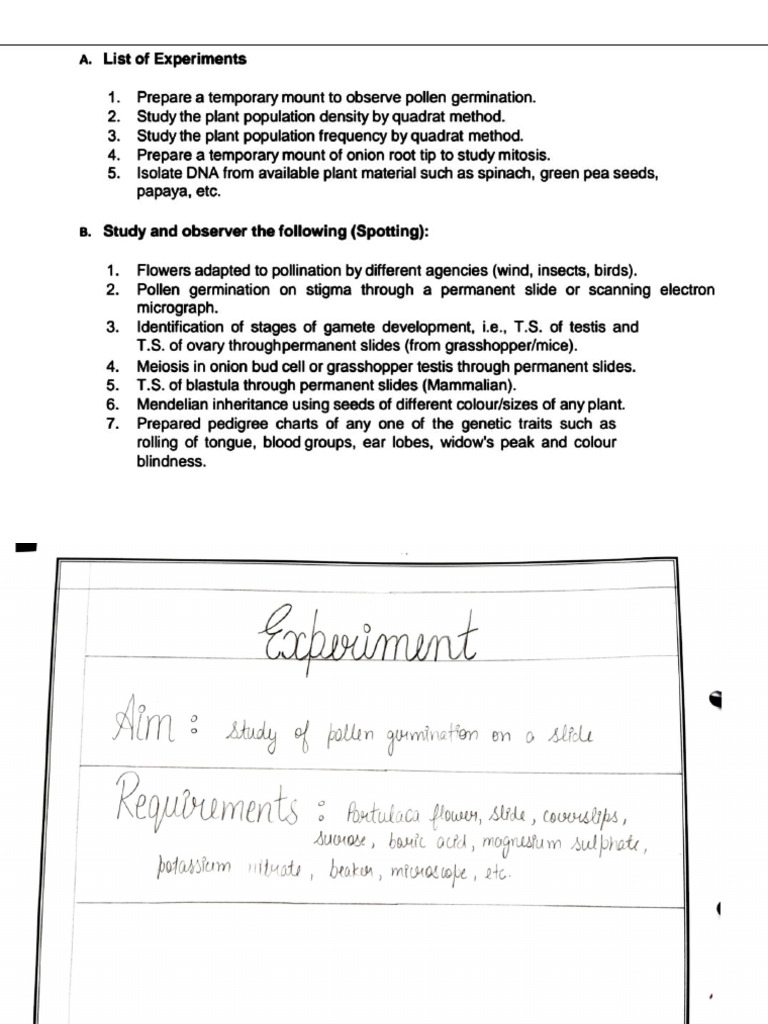 A. List of Experiments
1. Prepare a temporary mount to observe pollen germination.
2. Study the plant population density by quadrat method.
3. Study the plant population frequency by quadrat method.
4. Prepare a temporary mount of onion root tip to study mitosis.
5. Isolate DNA from available plant material such as spinach, green pea seeds,
papaya, etc.
B. Study and observer the following (Spotting):
1. Flowers adapted to pollination by different agencies (wind, insects, birds).
2. Pollen germination on stigma through a permanent slide or scanning electron
micrograph.
3. Identification of stages of gamete development, i.e., T.S. of testis and
T.S. of ovary through permanent slides (from grasshopper/mice).
4. Meiosis in onion bud cell or grasshopper testis through permanent slides.
5. T.S. of blastula through permanent slides (Mammalian).
6. Mendelian inheritance using seeds of different colour/sizes of any plant.
7. Prepared pedigree charts of any one of the genetic traits such as
rolling of tongue, blood groups, ear lobes, widow's peak and colour
blindness.
Experiment
Aim : Study of pollen germination on a slide
Requirements : Portulaca flower, slide, coverslips,
sucrose, boric acid, magnesium sulphate,
potassium nitrate, beaker, microscope, etc.